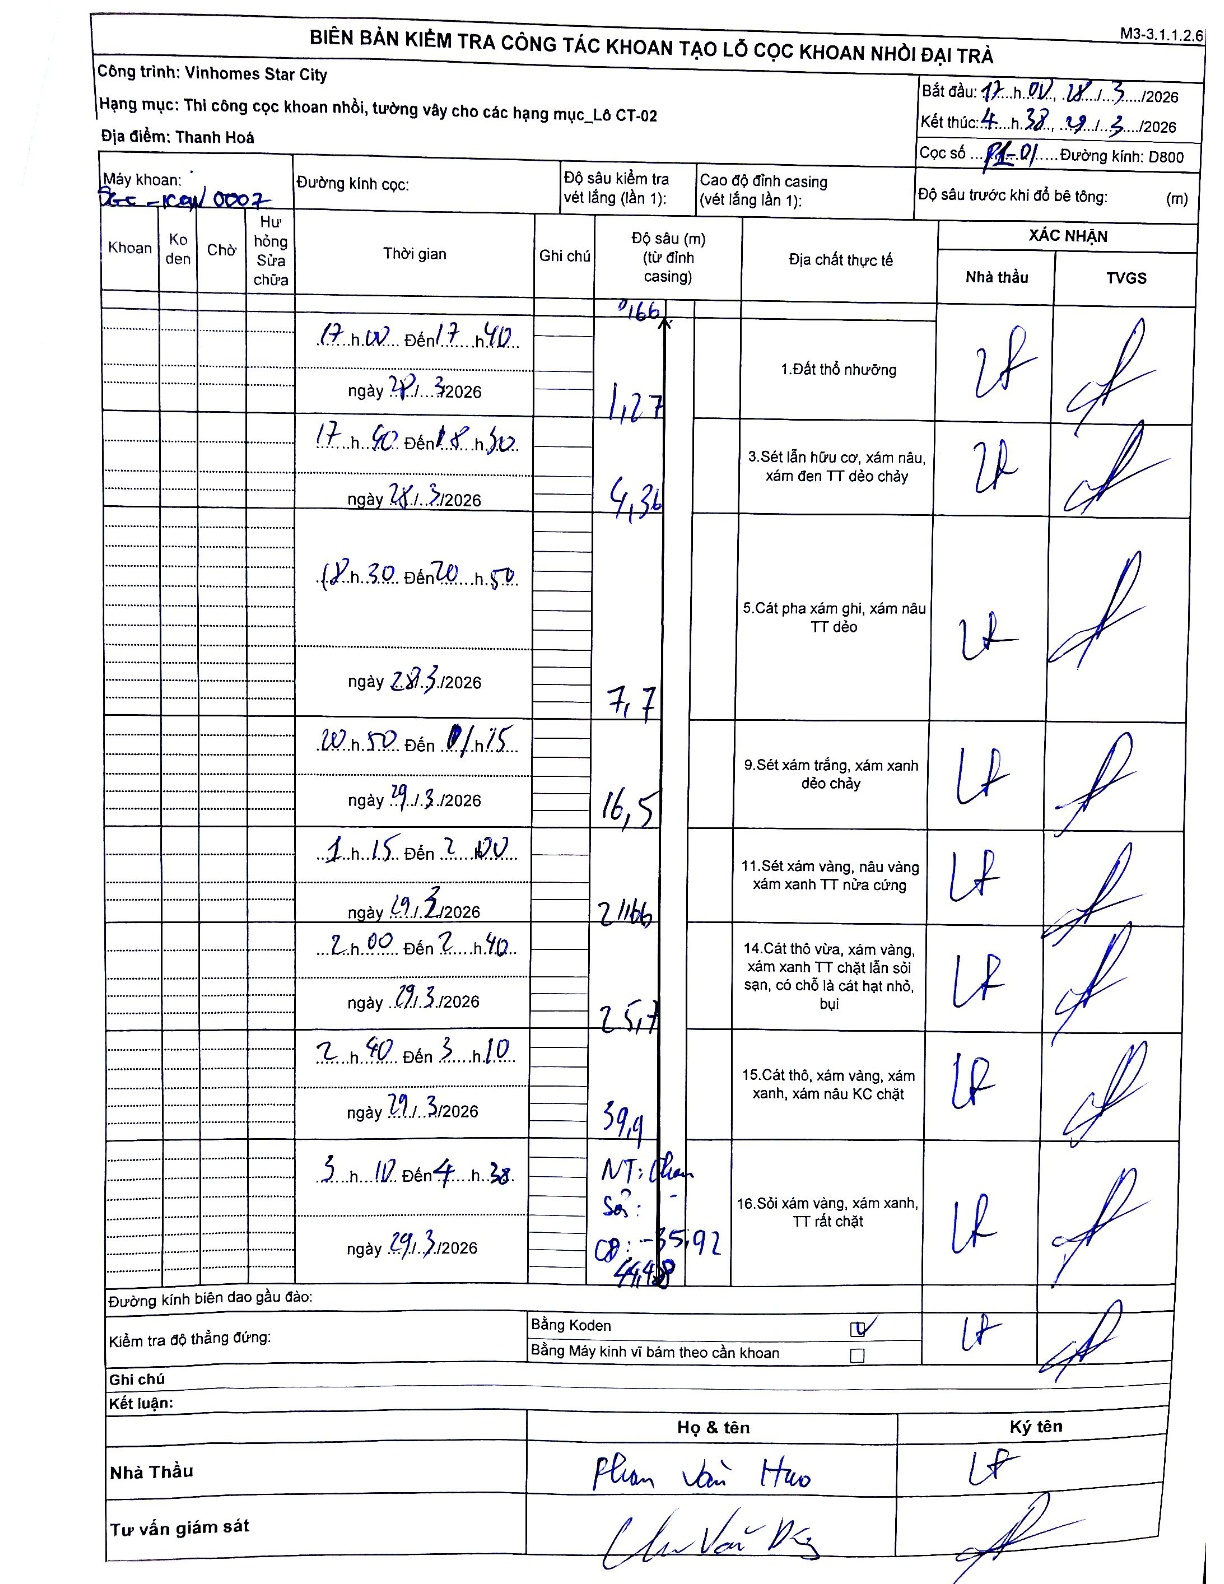 M3-3.1.1.2.6
BIÊN BẢN KIỂM TRA CÔNG TÁC KHOAN TẠO LỖ CỌC KHOAN NHỒI ĐẠI TRÀ
Công trình: Vinhomes Star City
Hạng mục: Thi công cọc khoan nhồi, tường vây cho các hạng mục_Lô CT-02
Địa điểm: Thanh Hoá
Bắt đầu: 17 h 00, 28/3/2026
Kết thúc: 4 h 38, 29/3/2026
Cọc số P1-01 Đường kính: D800
Máy khoan:
Đường kính cọc:
Độ sâu kiểm tra vét lắng (lần 1):
Cao độ đỉnh casing (vét lắng lần 1):
Độ sâu trước khi đổ bê tông: (m)
Khoan
Ko den
Chờ
Hư hỏng Sửa chữa
Thời gian
Ghi chú
Độ sâu (m) (từ đỉnh casing)
Địa chất thực tế
XÁC NHẬN
Nhà thầu
TVGS
17 h 00 Đến 17 h 40
ngày 28/3/2026
1,27
1.Đất thổ nhưỡng
17 h 40 Đến 18 h 30
ngày 28/3/2026
4,36
3.Sét lẫn hữu cơ, xám nâu,
xám đen TT dẻo chảy
18 h 30 Đến 20 h 50
ngày 28/3/2026
7,7
5.Cát pha xám ghi, xám nâu
TT dẻo
20 h 50 Đến 01 h 15
ngày 29/3/2026
16,5
9.Sét xám trắng, xám xanh
dẻo chảy
1 h 15 Đến 2 h 00
ngày 29/3/2026
21,66
11.Sét xám vàng, nâu vàng
xám xanh TT nửa cứng
2 h 00 Đến 2 h 40
ngày 29/3/2026
25,7
14.Cát thô vừa, xám vàng,
xám xanh TT chặt lẫn sỏi
sạn, có chỗ là cát hạt nhỏ,
bụi
2 h 40 Đến 3 h 10
ngày 29/3/2026
39,9
15.Cát thô, xám vàng, xám
xanh, xám nâu KC chặt
3 h 10 Đến 4 h 38
ngày 29/3/2026
CĐ: -35,92
16.Sỏi xám vàng, xám xanh,
TT rất chặt
Đường kính biên dao gầu đào:
Kiểm tra độ thẳng đứng:
Bằng Koden
Bằng Máy kinh vĩ bám theo cần khoan
Ghi chú
Kết luận:
Họ & tên
Ký tên
Nhà Thầu
Phan Văn
Tư vấn giám sát